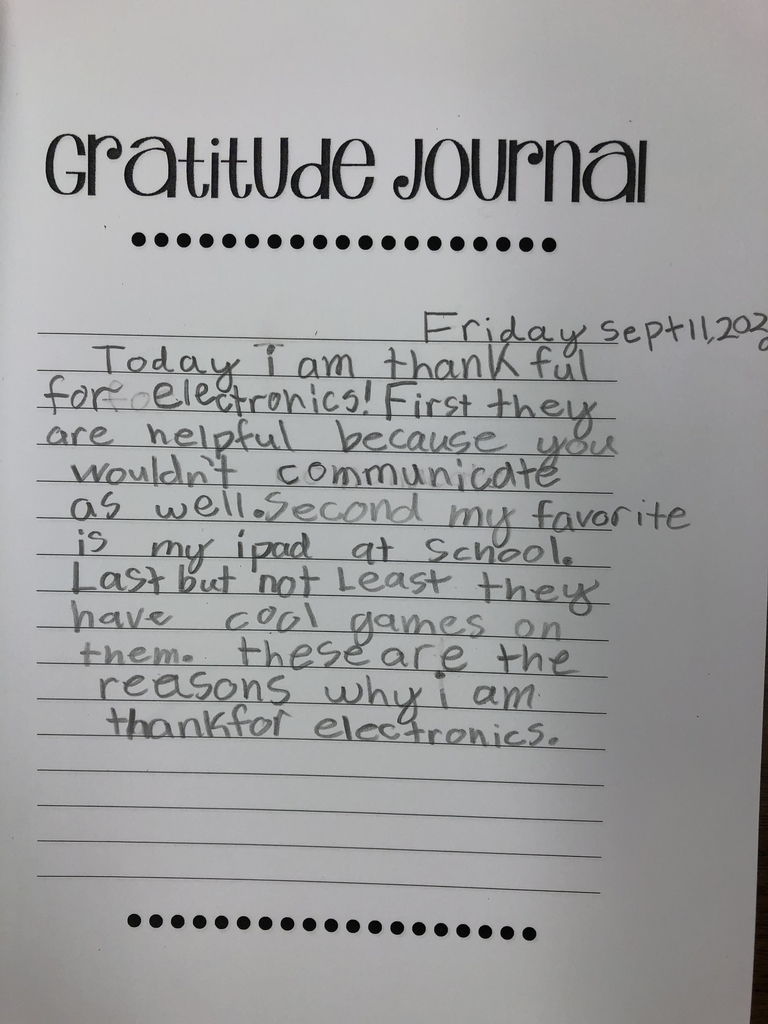 Gratitude Journal
Friday Sept 11, 202
Today i am thankful
for electronics! First they
are helpful because you
wouldn't communicate
as well. Second my favorite
is my ipad at School.
Last but not Least they
have cool games on
them. these are the
reasons why i am
thankfor electronics.